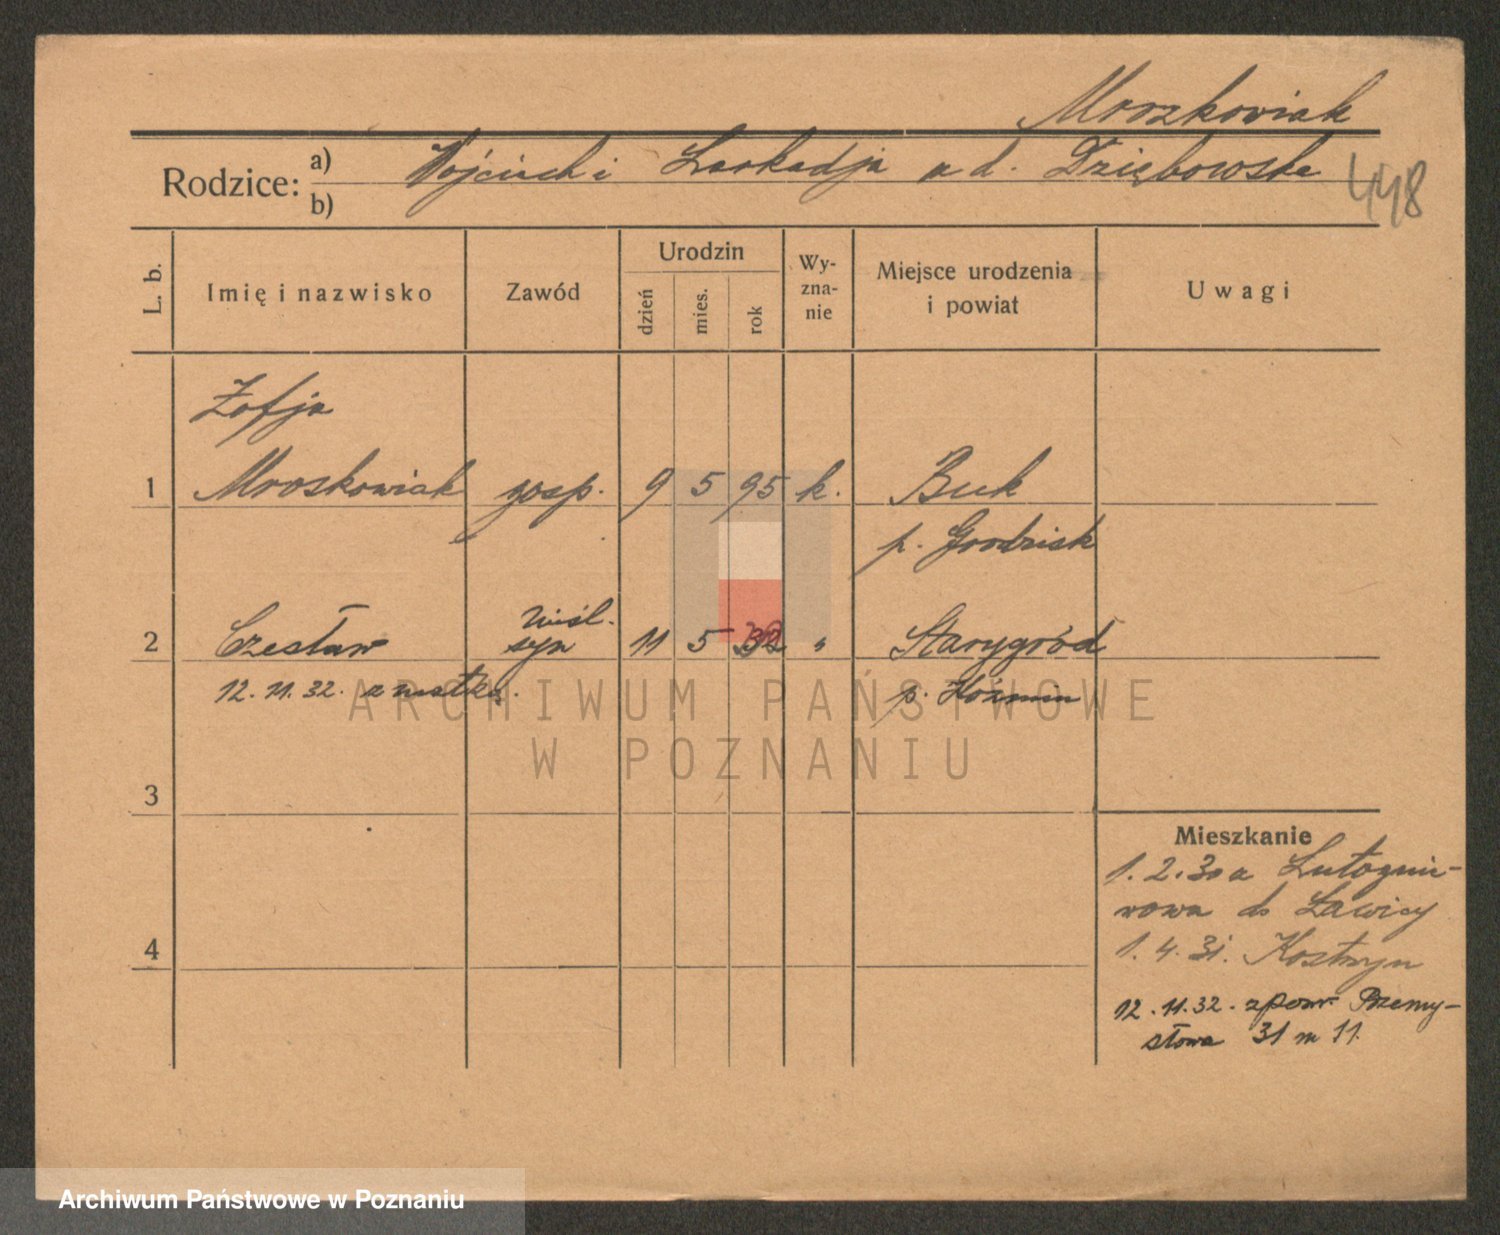 Mroszkowiak
Rodzice: a) Wojciech i Leokadja u d. Dziębowska 448
b)
L. b. Imię i nazwisko Zawód Urodzin Wyznanie Miejsce urodzenia i powiat Uwagi
dzień mies. rok
Zofja
1 Mroskowiak gosp. 9 5 95 k. Buk
p. Grodzisk
nieśl.
2 Czesław syn 11 5 32 " Starygród
12. 11. 32. z matką. p. Koźmin
ARCHIWUM PAŃSTWOWE
W POZNANIU
3
Mieszkanie
1. 2. 30 z Lutogniewa
do Ławicy
4
1. 4. 31. Kostrzyn
12. 11. 32. z powr. Przemy-
słowa 31 m 11.
Archiwum Państwowe w Poznaniu